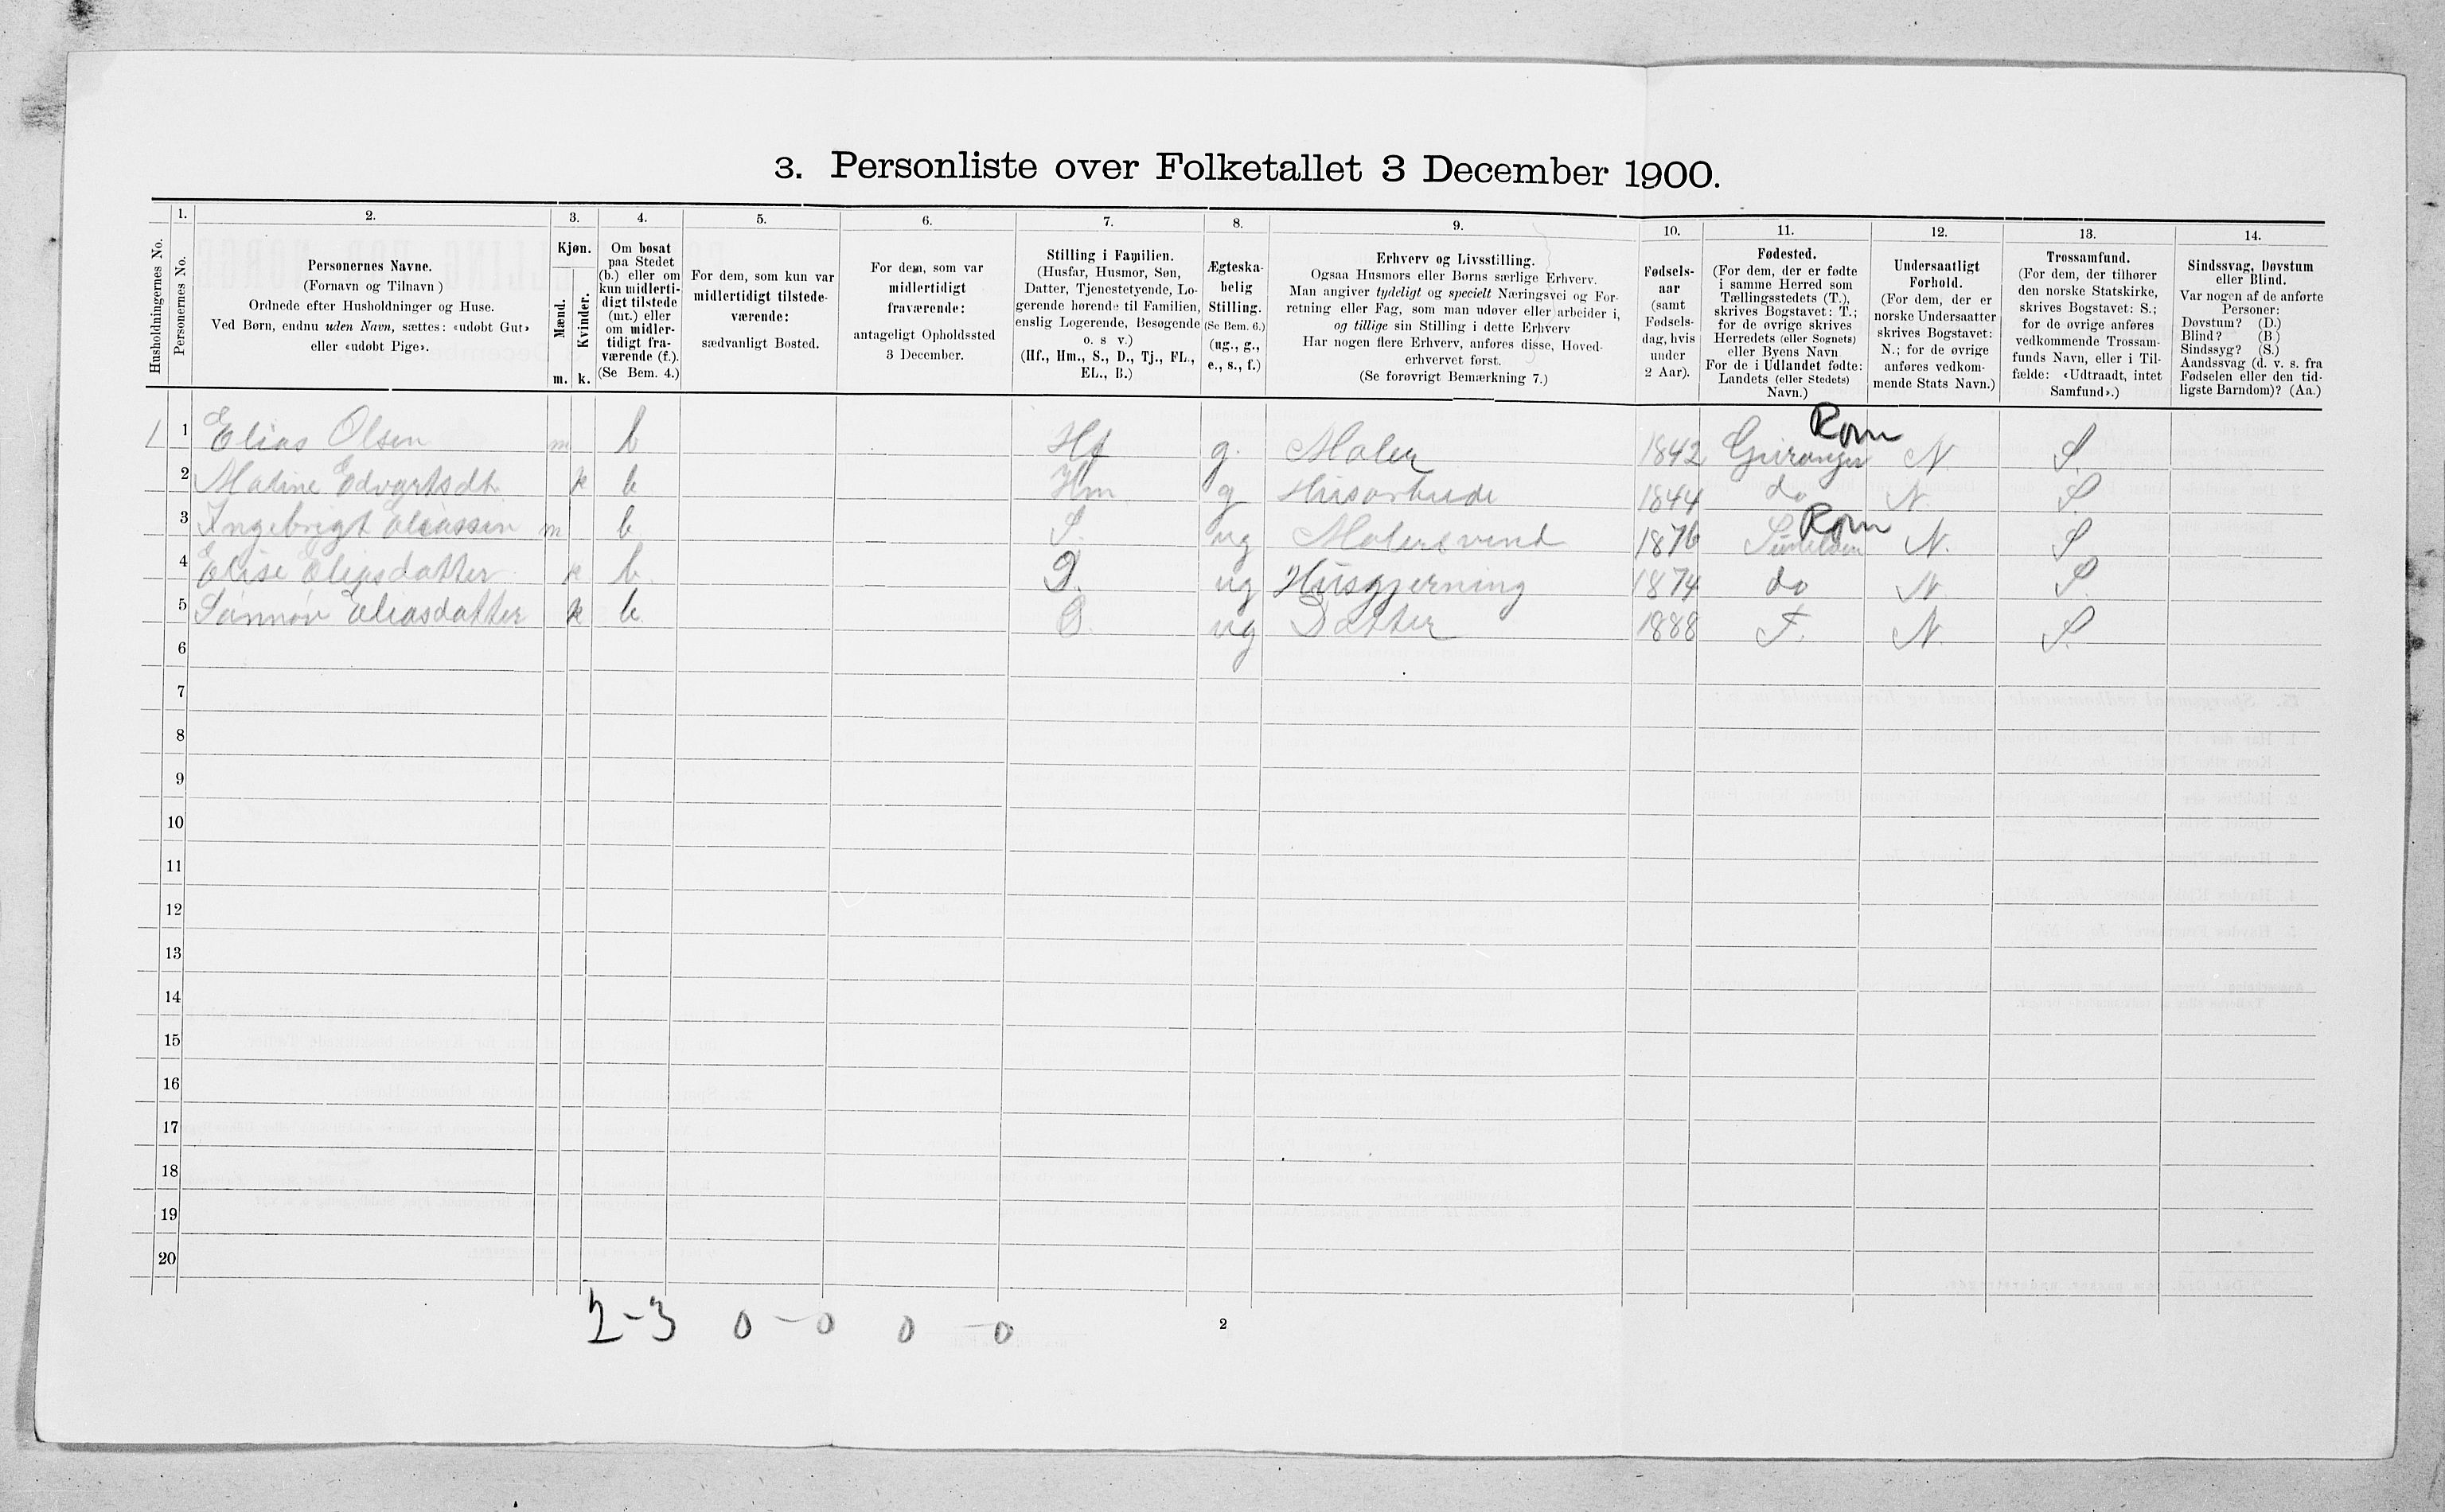 3. Personliste over Folketallet 3 December 1900.
1. 2. 3. 4. 5. 6. 7. 8. 9. 10. 11. 12. 13. 14.
Husholdningernes No.
Personernes No.
Personernes Navne.
(Fornavn og Tilnavn)
Ordnede efter Husholdninger og Huse.
Ved Børn, endnu uden Navn, sættes: «udøbt Gut»
eller «udøbt Pige».
Kjøn.
Mænd.
Kvinder.
m. k.
Om bosat
paa Stedet
(b.) eller om
kun midlerti-
digt tilstede
(mt.) eller
om midler-
tidigt fra-
værende (f.).
(Se Bem. 4.)
For dem, som kun var
midlertidigt tilstede-
værende:
sædvanligt Bosted.
For dem, som var
midlertidigt
fraværende:
antageligt Opholdssted
3 December.
Stilling i Familien.
(Husfar, Husmor, Søn,
Datter, Tjenestetyende, Lo-
gerende hørende til Familien,
enslig Logerende, Besøgende
o. s v.)
(Hf., Hm., S., D., Tj., FL.,
EL., B.)
Ægteska-
belig
Stilling.
(Se Bem. 6.)
(ug., g.,
e., s., f.)
Erhverv og Livsstilling.
Ogsaa Husmors eller Børns særlige Erhverv.
Man angiver tydeligt og specielt Næringsvei og For-
retning eller Fag, som man udøver eller arbeider i,
og tillige sin Stilling i dette Erhverv
Har nogen flere Erhverv, anføres disse, Hoved-
erhvervet først.
(Se forøvrigt Bemærkning 7.)
Fødsels-
aar
(samt
Fødsels-
dag, hvis
under
2 Aar).
Fødested.
(For dem, der er fødte
i samme Herred som
Tællingsstedets (T.),
skrives Bogstavet: T.;
for de øvrige skrives
Herredets (eller Sognets)
eller Byens Navn
For de i Udlandet fødte:
Landets (eller Stedets)
Navn.)
Undersaatligt
Forhold.
(For dem, der er
norske Undersaatter
skrives Bogstavet:
N.; for de øvrige
anføres vedkom-
mende Stats Navn.)
Trossamfund.
(For dem, der tilhører
den norske Statskirke,
skrives Bogstavet: S.;
for de øvrige anføres
vedkommende Trossam-
funds Navn, eller i Til-
fælde: «Udtraadt, intet
Samfund».)
Sindssvag, Døvstum
eller Blind.
Var nogen af de anførte
Personer:
Døvstum? (D.)
Blind? (B)
Sindssyg? (S.)
Aandssvag (d. v. s. fra
Fødselen eller den tid-
ligste Barndom)? (Aa.)
Rom
1 1 Elias Olsen m b Hf g. Maler 1842 Geiranger N. S.
2 Matine Edvartsdt. k b Hm g Husarbeide 1844 do N. S.
Rom
3 Ingebrigt Eliassen m b S. ug Malersvend 1876 Sunelven N. S
4 Elise Eliasdatter k b. D. ug Husgjerning 1874 do N. S.
5 Sønnøv Eliasdatter k b. D. ug Datter 1888 T. N. S.
6
7
8
9
10
11
12
13
14
15
16
17
18
19
20
2-3 0-0 0-0
2